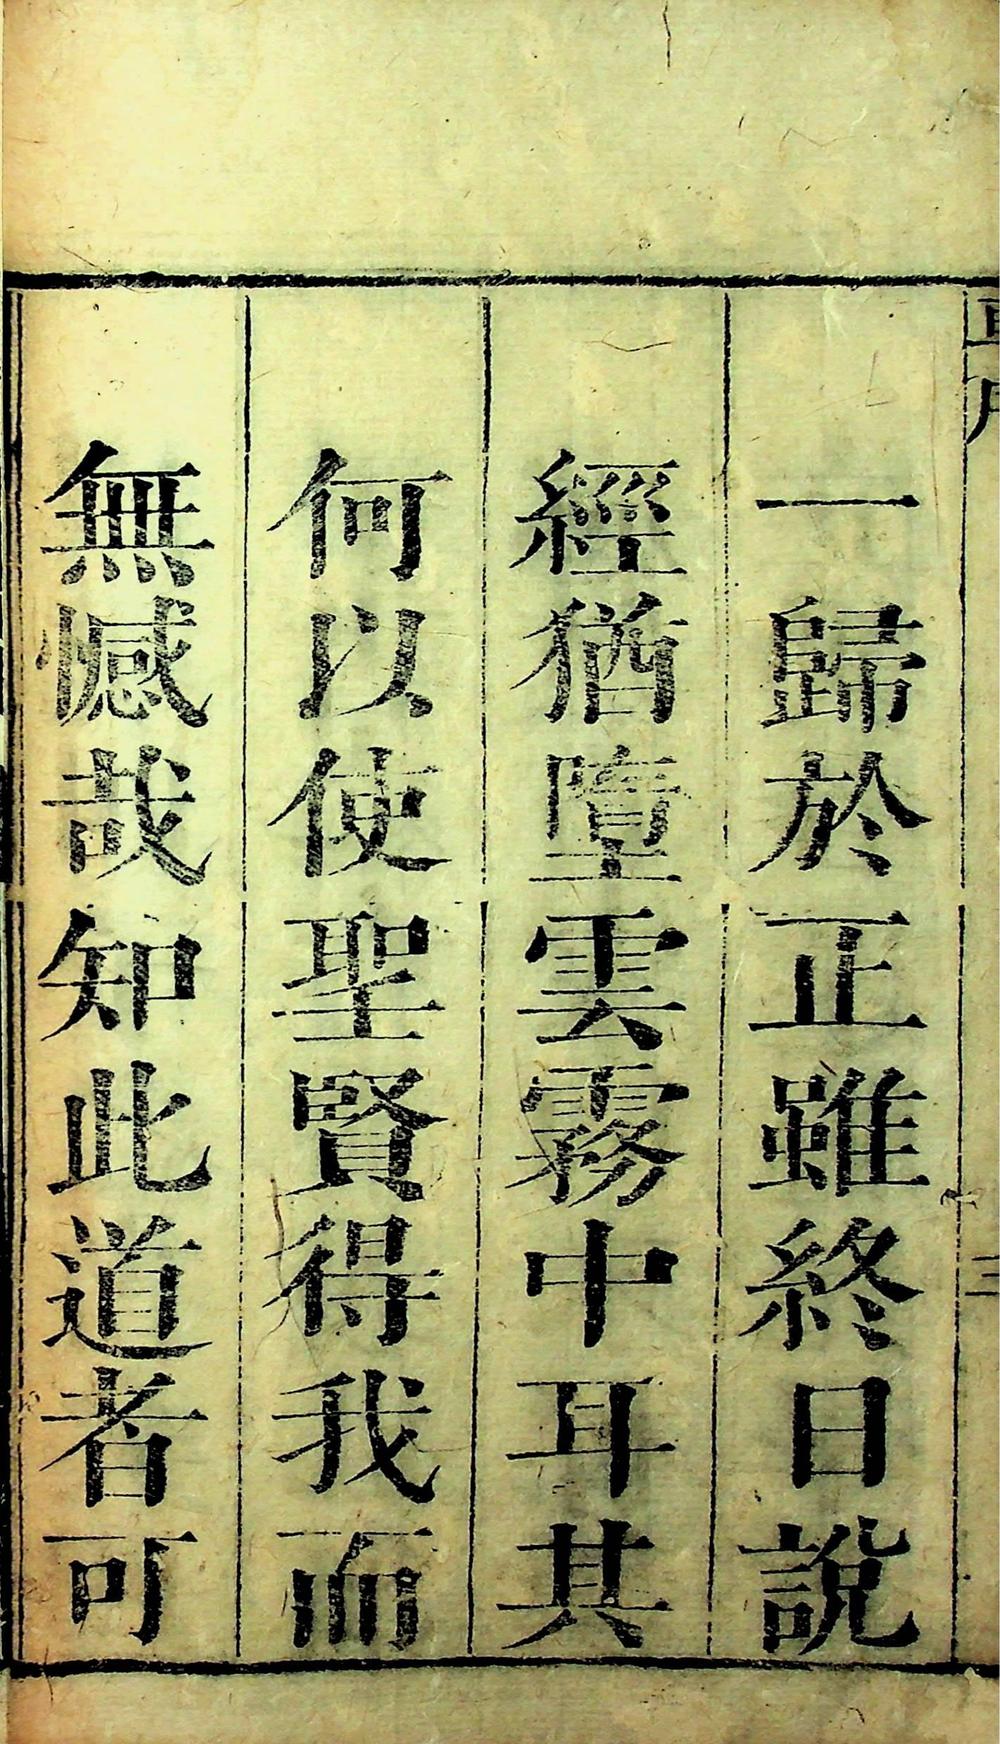 一歸於正雖終日說
經猶墮雲霧中耳其
何以使聖賢得我而
無憾哉知此道者可